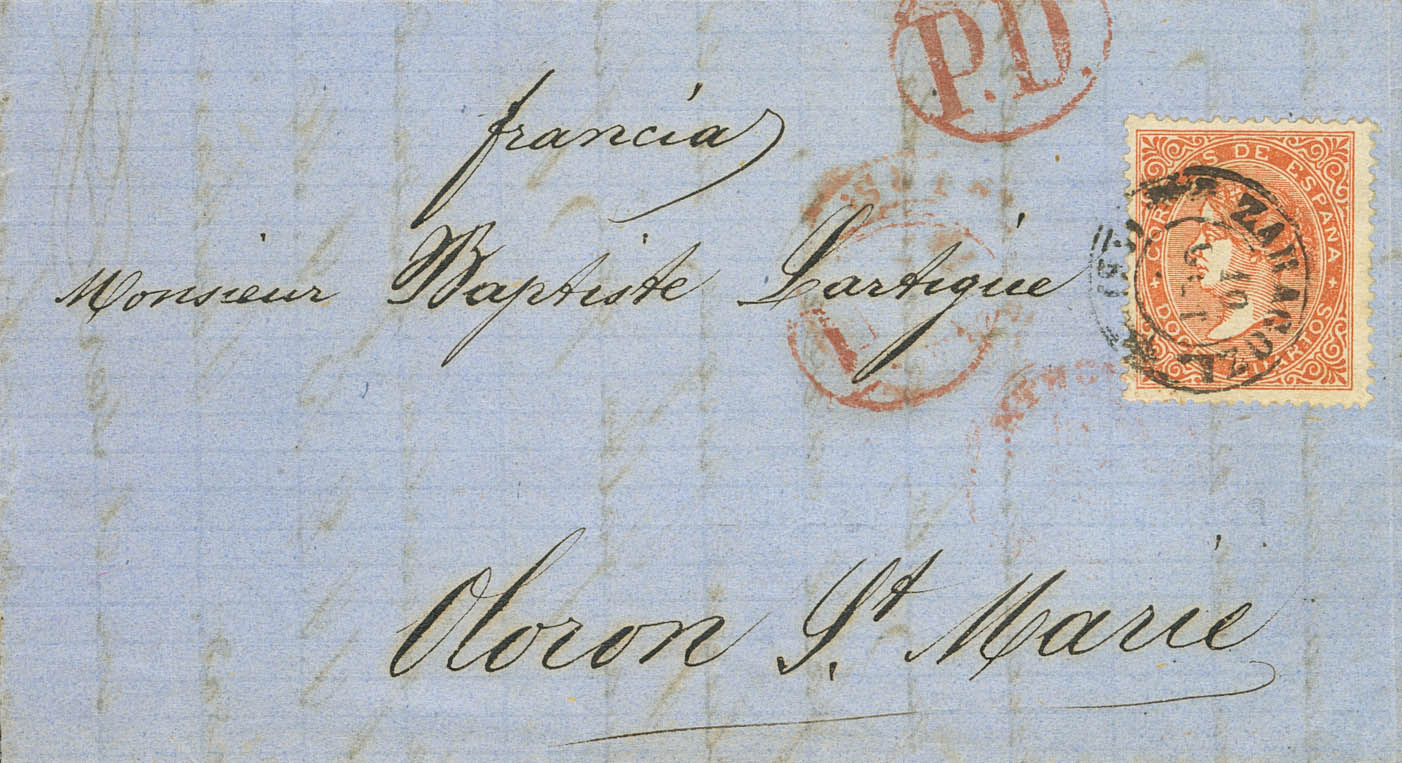 P.D.
francia
Monsieur Baptiste Lartigue
Oloron St. Marie
CORREOS DE ESPAÑA
DOCE CUARTOS
ZARAGOZA